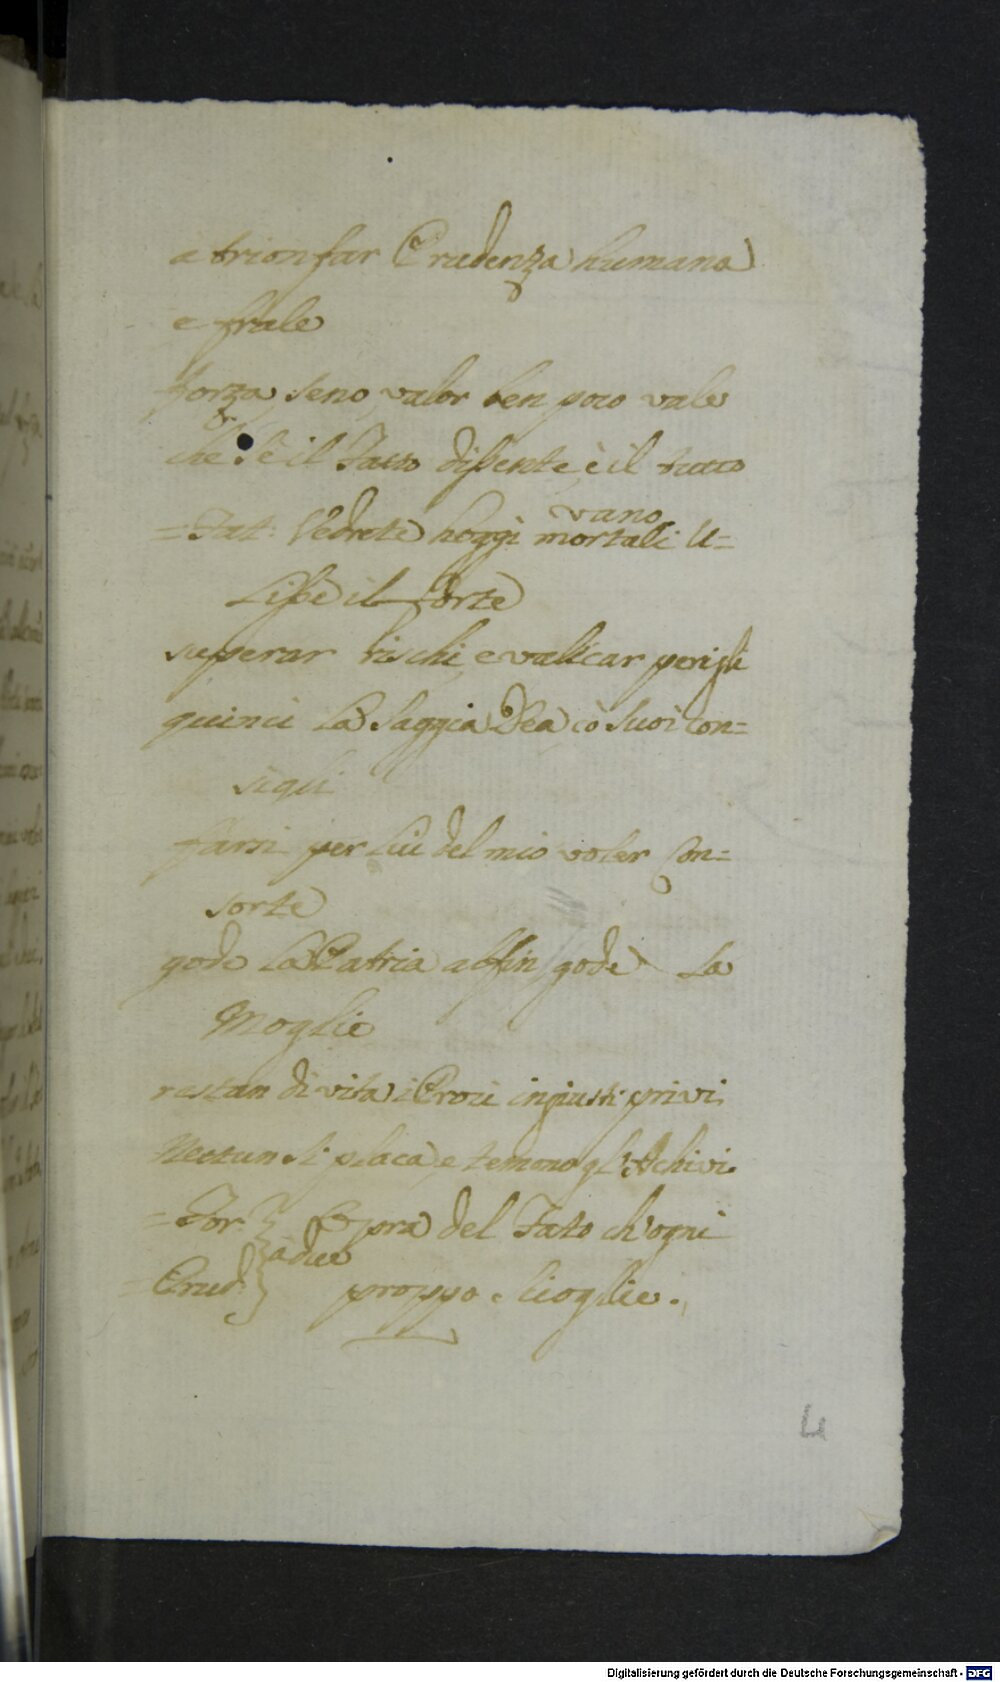 a trionfar Prudenza humana
e frale
forza, seno, valor ben poco vale
che s'è il Fatto dissente, è il tutto
vano
= Fat: Vedrete hoggi mortali U=
lisse il forte
superar rischi, e valicar perigli
quinci la saggia Dea cò suoi Con=
sigli
farsi per lui del mio voler Con=
sorte
gode la Patria alfin, gode la
Moglie
restan di vita i Proci ingiusti privi
Nettun si placa e temono gl'Achivi.
= For. } Opra del Fato ch'ogni
à due
= Prud. } groppo scioglie.
4
Digitalisierung gefördert durch die Deutsche Forschungsgemeinschaft - DFG